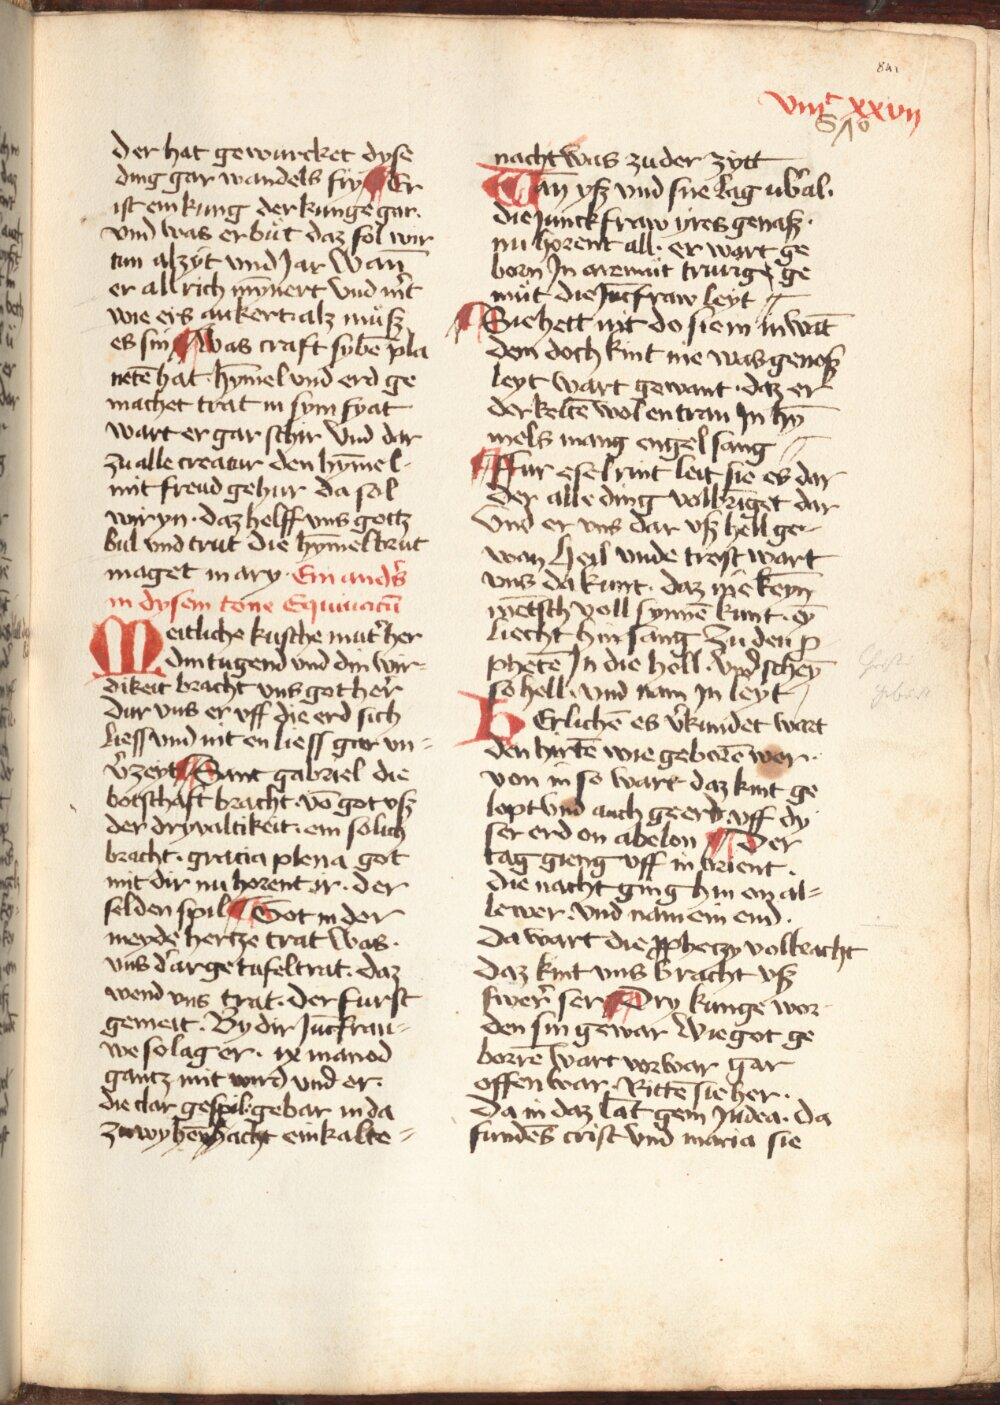 841
viiijc xxvij
810
der hat gewurcket dyse
ding gar wandels fry Er
ist ein kunig der kunge gar.
vnd was er büt daz sol wir
tun alzyt vnd Jar Wañ
er all rich mȳnert vnd mˀt
wie ers ankert. alz müß
es sin Was craft sybē pla
netē hat. hȳmel vnd erd ge
machet trat in sym fyat
wart er gar schir Vnd dar
zu alle creatur den hȳmel-
mit freud gehur da sol
wir yn. daz helff vns gottz
bul vnd trut die hȳmel brut
maget mary. Ein andˀs
in dysem tone Equiuocū
Meitliche kusche mutˀ her
din tugend vnd din wir-
dikeit bracht vns got herˀ
dur vns er vff die erd sich
liess vnd nit en liess gar vn=
vˀzeyt Sant gabriel die
botschaft bracht. vō got vß
der dryvaltikeit. ein solich
bracht. gracia plena got
mit dir nu horent ir. der
selden spil Got in der
meyde hertze trat Was.
vns dˀ arge tufel trat. daz
wend vns trat. Der furst
gemeit. By dir Jūcfrau=
we so lag er. ix manod
gantz mit wird vnd er.
die clar gespil. gebar in da
zu wyhēnacht ein kalte=
nacht was zu der zytt
Tañ yß vnd sne lag ubˀal.
die Junckfraw yres genaß.
nu horent all. er wart ge
born In armüt trurig ge
müt die Jūcfraw leyt
Sie hett nit do sie in in wāt
dem doch kint nie was genoß
leyt wart gewant. daz er
der keltē wol entran In hȳ
mels mang engel sang
Fur esel rint leit sie es dar
der alle ding volbrīget dar
Vnd er vns dar vß hell ge-
wan Heil vnde trost wart
vns da kunt. daz nie keȳn
mētsch voll synnē kunt. eȳ
liecht hin sang Zu den ꝓ
phetē In die hell. vnd scheȳ
so hell. vnd nam In leyt
HErlichē es vˀkundet wart
den hirtē wie geborē wer.
von in so wart daz kint ge
lopt vnd auch geert. vff dy
ser erd on abelon Der
tag gieng vff in orient.
die nacht ging hin on al=
lewer. vnd nam ein end.
Da wart die ꝓpheczy volbracht
daz kint vns bracht vß
swerˀ ser Dry kunge wor
den sin gewar Wie got ge
borrē wart vorwar gar
offenwar. Rittē sie her.
Da in daz lāt gem Judea. da
fundēs crist vnd maria sie